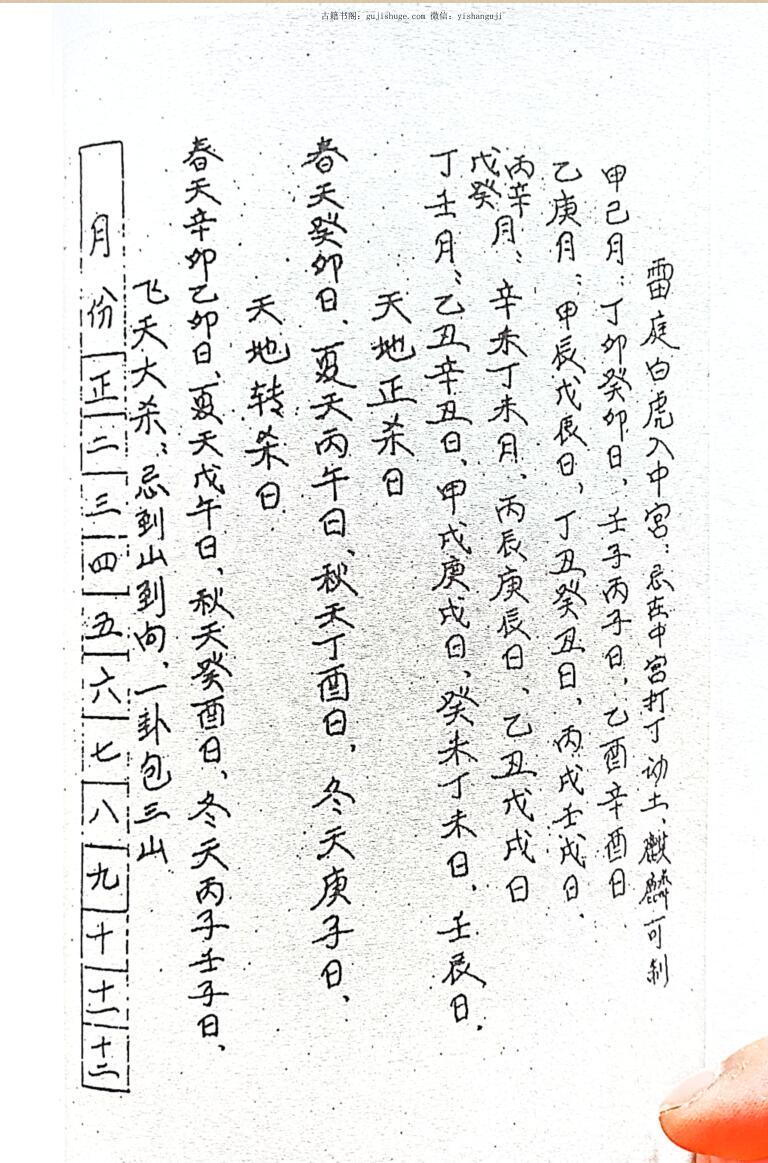 古籍书阁:gujishuge.com 微信:yishanguji
雷庭白虎入中宫:忌在中宫打丁动土、麒麟可制
甲己月:丁卯癸卯日,壬子丙子日,乙酉辛酉日
乙庚月:甲辰戊辰日,丁丑癸丑日,丙戌壬戌日、
丙辛
戊癸月:辛未丁未月、丙辰庚辰日、乙丑戊戌日
丁壬月:乙丑辛丑日、甲戌庚戌日、癸未丁未日,壬辰日,
天地正杀日
春天癸卯日、夏天丙午日、秋天丁酉日,冬天庚子日、
天地转杀日
春天辛卯乙卯日、夏天戊午日、秋天癸酉日、冬天丙子壬子日、
飞天大杀:忌到山到向、一卦包三山
月份 正 二 三 四 五 六 七 八 九 十 十一 十二